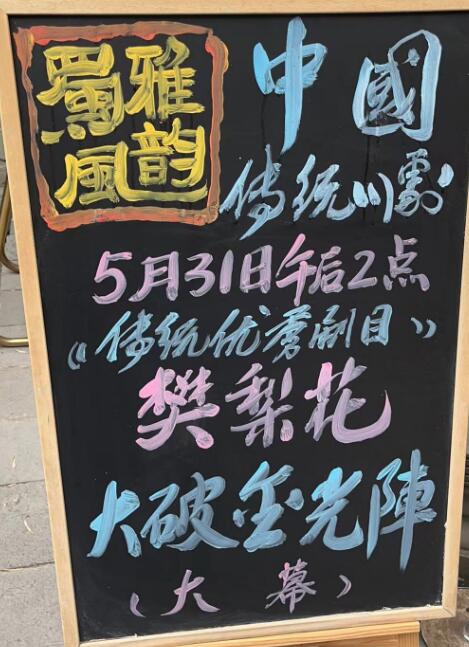 蜀風雅韵
中國
传统川劇
5月31日午后2点
《传统优秀剧目》
樊梨花
大破金光陣
(大幕)